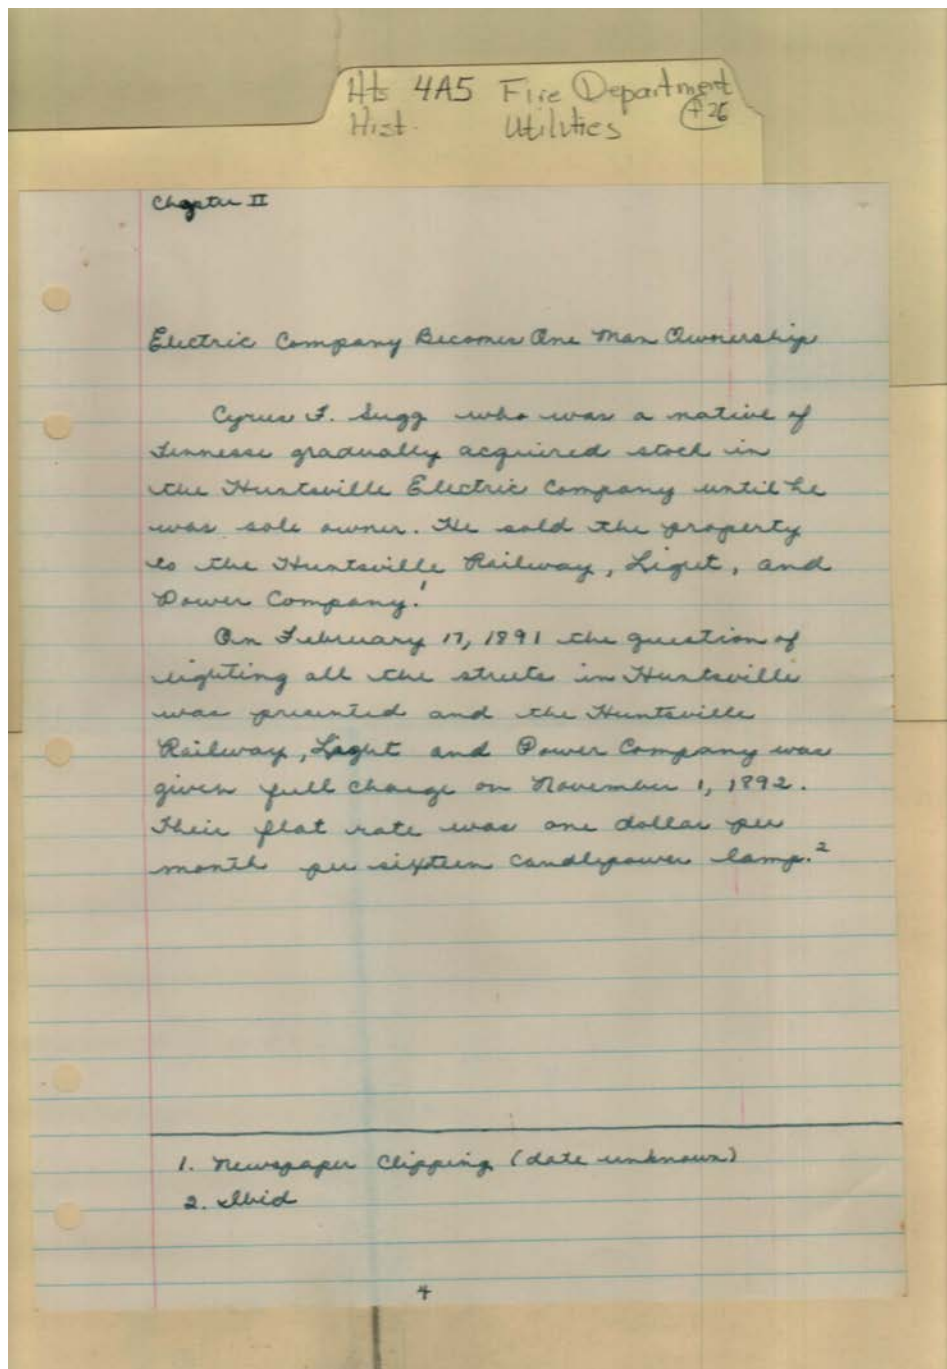 Hts 4A5 Fire Department
Hist. Utilities
P 26
Chapter II
Electric Company Becomes One Man Ownership
Cyrus F. Sugg who was a native of
Tennesse gradually acquired stock in
the Huntsville Electric Company until he
was sole owner. He sold the property
to the Huntsville Railway, Light, and
Power Company.¹
On February 17, 1891 the question of
lighting all the streets in Huntsville
was presented and the Huntsville
Railway, Light and Power Company was
given full charge on November 1, 1892.
Their flat rate was one dollar per
month per sixteen candlepower lamp.²
1. Newspaper Clipping (date unknown)
2. Ibid
4